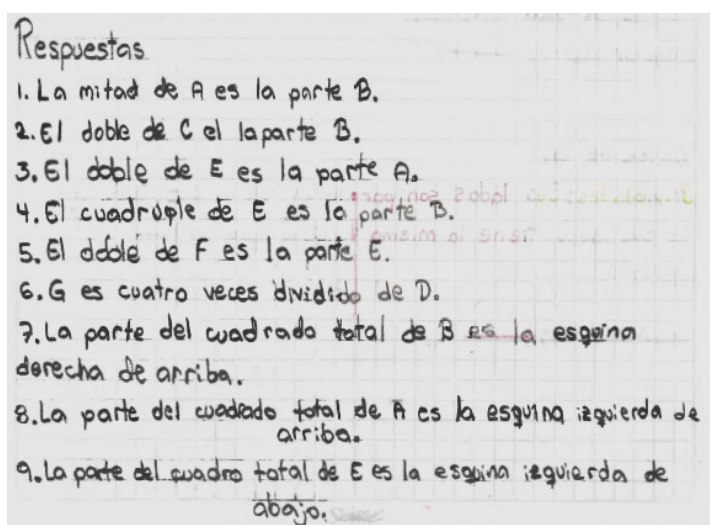 Respuestas
1. La mitad de A es la parte B.
2. El doble de C el la parte B.
3. El doble de E es la parte A.
4. El cuadruple de E es la parte B.
5. El doble de F es la parte E.
6. G es cuatro veces dividido de D.
7. La parte del cuadrado total de B es la esquina
derecha de arriba.
8. La parte del cuadrado total de A es la esquina izquierda de
arriba.
9. La parte del cuadro total de E es la esquina izquierda de
abajo.